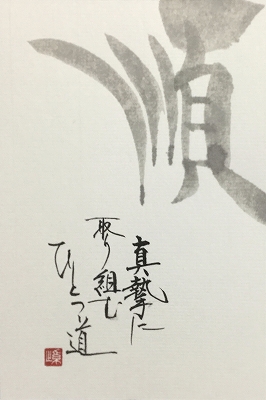 順
真摯に
取り組む
ひとつ道